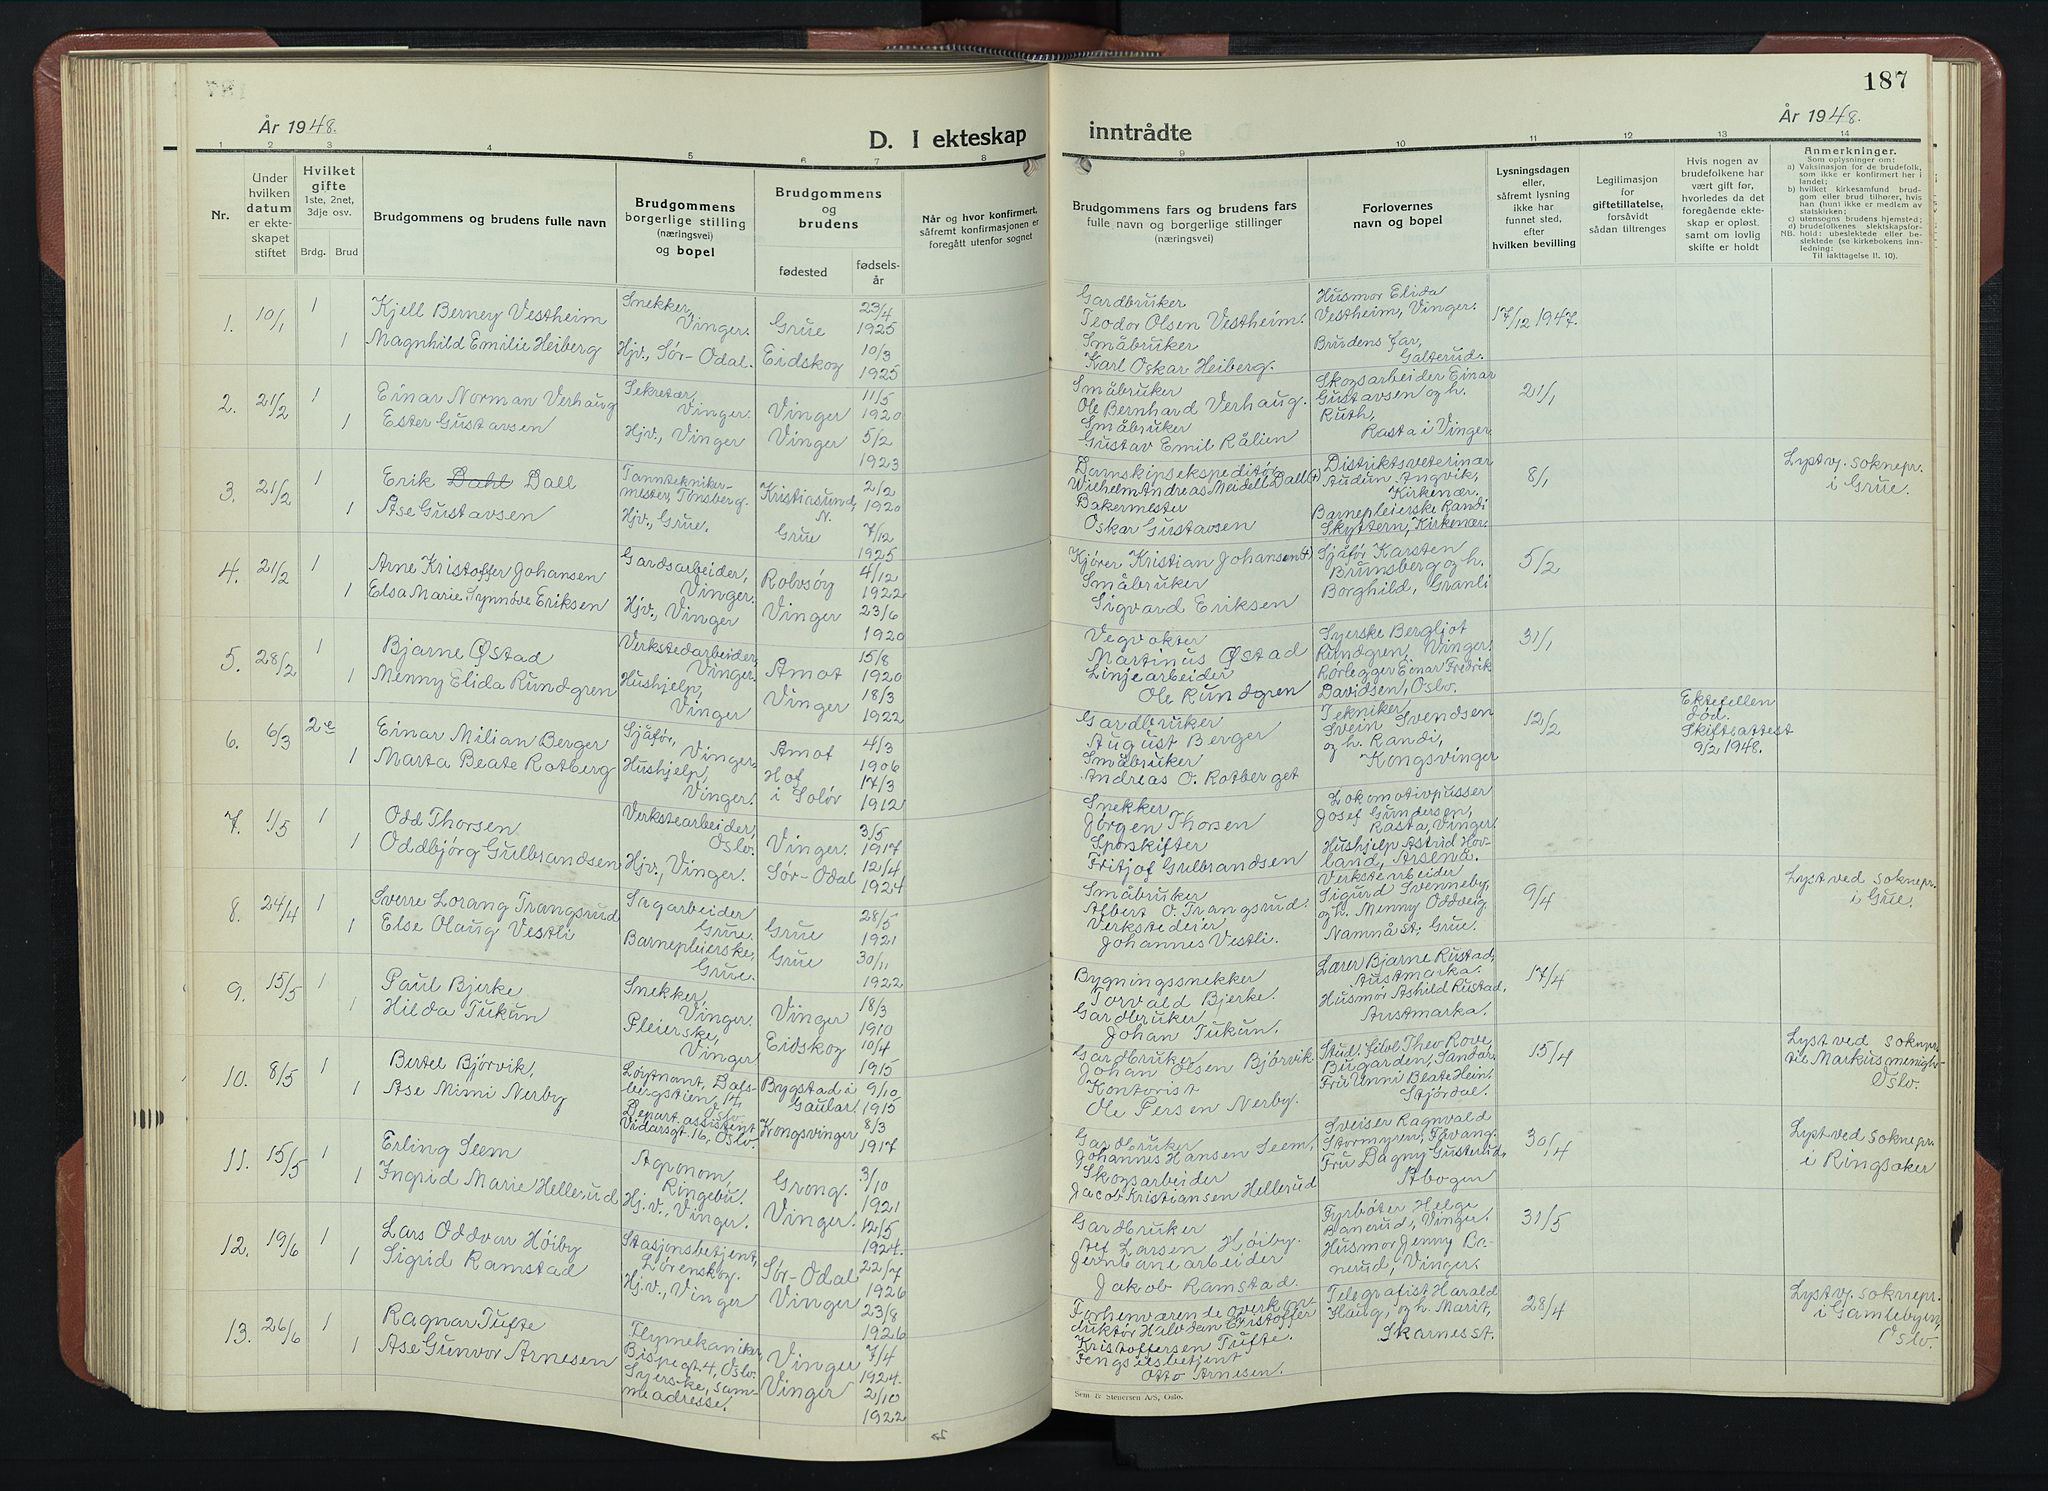 187
År 1948.
År 1948.
D. I ekteskap
inntrådte
1 2 3 4 5 6 7 8
9 10 11 12 13 14
Nr.
Under
hvilken
datum
er ekte-
skapet
stiftet
Hvilket
gifte
1ste, 2net,
3dje osv.
Brdg. Brud
Brudgommens og brudens fulle navn
Brudgommens
borgerlige stilling
(næringsvei)
og bopel
Brudgommens
og
brudens
fødested
fødsels-
år
Når og hvor konfirmert,
såfremt konfirmasjonen er
foregått utenfor sognet
Brudgommens fars og brudens fars
fulle navn og borgerlige stillinger
(næringsvei)
Forlovernes
navn og bopel
Lysningsdagen
eller,
såfremt lysning
ikke har
funnet sted,
efter
hvilken bevilling
Legitimasjon
for
giftetillatelse,
forsåvidt
sådan tiltrenges
Hvis nogen av
brudefolkene har
vært gift før,
hvorledes da det
foregående ekte-
skap er opløst,
samt om lovlig
skifte er holdt
Anmerkninger.
Som oplysninger om:
a) Vaksinasjon for de brudefolk,
som ikke er konfirmert her i
landet;
b) hvilket kirkesamfund brud-
gom eller brud tilhører, hvis
han (hun) ikke er medlem av
statskirken;
c) utensogns brudens hjemsted;
d) brudefolkenes slektskapsfor-
NB. hold: ubeslektede eller be-
slektede (se kirkebokens inn-
ledning:
Til iakttagelse II. 10).
1. 10/1 1
Kjell Berney Vestheim
1 Magnhild Emilie Heiberg
Snekker,
Vinger.
Hjv., Sør-Odal.
Grue
Eidskog
23/4
1925
10/3
1925
Gardbruker
Teodor Olsen Vestheim.
Småbruker
Karl Oskar Heiberg.
Husmor Elida
Vestheim, Vinger.
Brudens far,
Galterud.
17/12 1947.
2. 21/2 1
Einar Norman Verhaug
1 Ester Gustavsen
Sekretær,
Vinger.
Hjv., Vinger
Vinger
Vinger
11/5
1920
5/2
1923
Småbruker
Ole Bernhard Verhaug.
Småbruker
Gustav Emil Rålien
Skogsarbeider Einar
Gustavsen og h.
Ruth,
Rasta i Vinger
21/1
3. 21/2 1
Erik Dahl Dall
1 Åse Gustavsen
Tanntekniker-
mester, Tønsberg.
Hjv., Grue.
Kristiasund,
N.
Grue
2/2
1920
7/12
1925
Damskipsekspeditør
Wilhelm Andreas Meidell Dall (+)
Bakermester
Oskar Gustavsen
Distriktsveterinær
Audun Angvik,
Kirkenær.
Barnepleierske Randi
Skyttern, Kirkenær
8/1
Lyst v. soknepr.
i Grue.
4. 21/2 1
Arne Kristoffer Johansen
1 Elsa Marie Synnøve Eriksen
Gardsarbeider,
Vinger.
Hjv., Vinger
Rolvsøy
Vinger
4/12
1922
23/6
1920
Kjører Kristian Johansen +
Småbruker
Sigvard Eriksen
Sjåfør Karsten
Brunsberg og h.
Borghild, Granli
5/2
5. 28/2 1
Bjarne Østad
1 Menny Elida Rundgren
Verkstedarbeider,
Vinger.
Hushjelp,
Vinger
Åmot
Vinger
15/8
1920
18/3
1922
Vegvokter
Martinus Østad
Linjearbeider
Ole Rundgren
Syerske Bergljot
Rundgren, Vinger.
Rørlegger Einar Fredrik
Davidsen, Oslo.
31/1
6. 6/3 2e
Einar Milian Berger
1 Marta Beate Rotberg
Sjåfør,
Vinger.
Hushjelp,
Vinger.
Åmot
Hof
i Solør
4/3
1906
17/3
1912
Gardbruker
August Berger
Småbruker
Andreas O. Rotberget
Tekniker
Svein Svendsen
og h. Randi,
Kongsvinger
12/2
Ektefellen
død.
Skifteattest
9/2 1948.
7. 1/5 1
Odd Thorsen
1 Oddbjørg Gulbrandsen
Verkstearbeider,
Oslo.
Hjv., Vinger.
Vinger.
Sør-Odal
3/5
1917
12/4
1924
Snekker
Jørgen Thorsen
Sporskifter
Fritjof Gulbrandsen
Lokomotivpusser
Josef Gundersen,
Rasta, Vinger.
Hushjelp Astrid Hov-
land, Arsenå.
8. 24/4 1
Sverre Lorang Trangsrud
1 Else Olaug Vestli
Sagarbeider
Grue.
Barnepleierske,
Grue.
Grue
Grue
28/5
1921
30/11
1922
Småbruker
Albert O. Trangsrud.
Verkstedeier
Johannes Vestli.
Verkstearbeider
Sigurd Svenneby,
og h. Menny Oddveig
Namnå st. Grue.
9/4
Lyst ved soknepr.
i Grue.
9. 15/5 1
Paul Bjerke
1 Hilda Tukun
Snekker,
Vinger.
Pleierske,
Vinger
Vinger
Eidskog
18/3
1910
10/4
1915
Bygningssnekker
Torvald Bjerke.
Gardbruker
Johan Tukun.
Lærer Bjarne Rustad,
Austmarka.
Husmor Åshild Rustad,
Austmarka.
17/4
10. 8/5 1
Bertel Bjørvik,
1 Åse Mimi Nerby
Løytnant, Dals-
bergstien, 14
Oslo.
Depart. assistent
Vidarsgt. 16, Oslo.
Bygstad i
Gaular
Kongsvinger
9/10
1915
8/3
1917
Gardbruker
Johan Olsen Bjørvik.
Kontorist
Ole Persen Nerby.
Stud. filol Theo Rove,
Bugarden, Sandar.
Fru Unni Beate Hein,
Stjørdal.
15/4
Lyst ved soknepr.
til Markus menigh.
Oslo.
11. 15/5 1
Erling Seem
1 Ingrid Marie Hellerud
Agronom,
Ringebu.
Hj.v., Vinger.
Grong.
Vinger.
3/10
1921
12/5
1924.
Gardbruker
Johannes Hansen Seem,
Skogsarbeider
Jacob Kristiansen Hellerud
Sveiser Ragnvald
Stormyren, Fåvang.
Fru Dagny Gusterud,
Åbogen
30/4
Lyst ved soknepr.
i Ringsaker
12. 19/6 1
Lars Oddvar Høiby
1 Sigrid Ramstad
Stasjonsbetjent,
Lørenskog.
Hj.v., Vinger
Sør-Odal
Vinger
22/7
1926
23/8
1926
Gardbruker
Alf Larsen Høiby.
Jernbanearbeider
Jakob Ramstad.
Fyrbøter Helge
Banerud, Vinger.
Husmor Jenny Ba-
nerud, Vinger.
31/5
13. 26/6 1
Ragnar Tufte
1 Åse Gunvor Arnesen
Flymekaniker,
Bispegt. 4, Oslo.
Syerske, sam-
me adresse.
Vinger
Vinger
7/4
1924.
2/10
1922
Forhenværende overkon-
duktør Halvdan Kristoffer
Kristoffersen Tufte.
Fengselsbetjent
Otto Arnesen.
Telegrafist Harald
Haug, og h. Marit,
Skarnes st.
28/4
Lyst v. soknepr.
i Gamlebyen,
Oslo.
Sem & Stenersen A/S, Oslo.